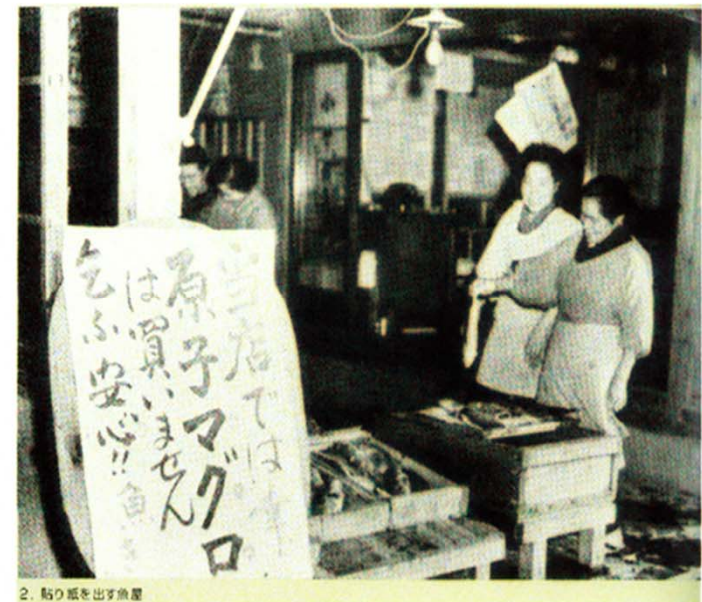 当店では
原子マグロ
は買いません
乞ふ安心!!
魚
2. 貼り紙を出す魚屋